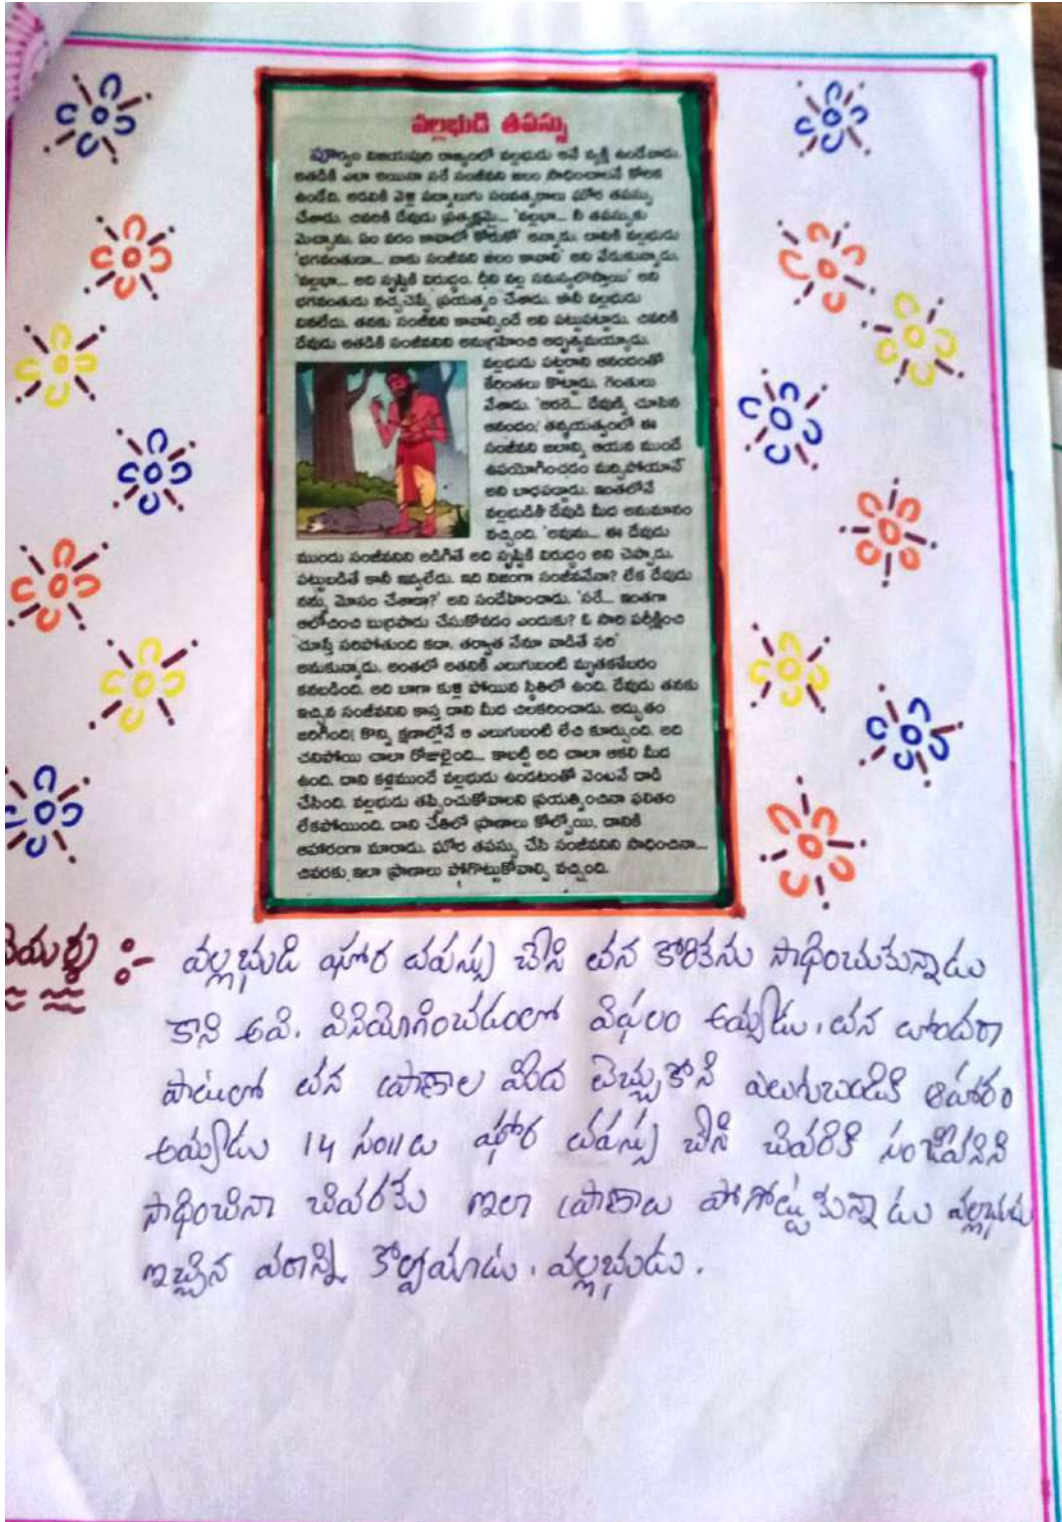 వల్లభుడి తపస్సు
పూర్వం విజయపురి రాజ్యంలో వల్లభుడు అనే వ్యక్తి ఉండేవాడు.
అతడికి ఎలా అయినా సరే సంజీవని జలం సాధించాలనే కోరిక
ఉండేది. అడవికి వెళ్లి పద్నాలుగు సంవత్సరాలు ఘోర తపస్సు
చేశాడు. చివరికి దేవుడు ప్రత్యక్షమై... 'వల్లభా... నీ తపస్సుకు
మెచ్చాను. ఏం వరం కావాలో కోరుకో' అన్నాడు. దానికి వల్లభుడు
'భగవంతుడా... నాకు సంజీవని జలం కావాలి' అని వేడుకున్నాడు.
'వల్లభా... అది సృష్టికి విరుద్ధం. దీని వల్ల సమస్యలొస్తాయి' అని
భగవంతుడు నచ్చచెప్పే ప్రయత్నం చేశాడు. కానీ వల్లభుడు
వినలేదు. తనకు సంజీవని కావాల్సిందే అని పట్టుపట్టాడు. చివరికి
దేవుడు అతడికి సంజీవనిని అనుగ్రహించి అదృశ్యమయ్యాడు.
వల్లభుడు పట్టరాని ఆనందంతో
కేరింతలు కొట్టాడు. గెంతులు
వేశాడు. 'అరరె... దేవుణ్ని చూసిన
ఆనందం, తన్మయత్వంలో ఈ
సంజీవని జలాన్ని ఆయన ముందే
ఉపయోగించడం మర్చిపోయానే'
అని బాధపడ్డాడు. ఇంతలోనే
వల్లభుడికి దేవుడి మీద అనుమానం
వచ్చింది. 'అవును... ఈ దేవుడు
ముందు సంజీవనిని అడిగితే అది సృష్టికి విరుద్ధం అని చెప్పాడు.
పట్టుబడితే కానీ ఇవ్వలేదు. ఇది నిజంగా సంజీవనేనా? లేక దేవుడు
నన్ను మోసం చేశాడా?' అని సందేహించాడు. 'సరే... ఇంతగా
ఆలోచించి బుర్రపాడు చేసుకోవడం ఎందుకు? ఓ సారి పరీక్షించి
చూస్తే సరిపోతుంది కదా. తర్వాత నేనూ వాడితే సరి'
అనుకున్నాడు. అంతలో అతనికి ఎలుగుబంటి మృతకళేబరం
కనబడింది. అది బాగా కుళ్లి పోయిన స్థితిలో ఉంది. దేవుడు తనకు
ఇచ్చిన సంజీవనిని కాస్త దాని మీద చిలకరించాడు. అద్భుతం
జరిగింది! కొన్ని క్షణాల్లోనే ఆ ఎలుగుబంటి లేచి కూర్చుంది. అది
చనిపోయి చాలా రోజులైంది... కాబట్టి అది చాలా ఆకలి మీద
ఉంది. దాని కళ్లముందే వల్లభుడు ఉండటంతో వెంటనే దాడి
చేసింది. వల్లభుడు తప్పించుకోవాలని ప్రయత్నించినా ఫలితం
లేకపోయింది. దాని చేతిలో ప్రాణాలు కోల్పోయి, దానికి
ఆహారంగా మారాడు. ఘోర తపస్సు చేసి సంజీవనిని సాధించినా...
చివరకు ఇలా ప్రాణాలు పోగొట్టుకోవాల్సి వచ్చింది.
వల్లభుడి ఘోర తపస్సు చేసి తన కోరికను సాధించుకున్నాడు
కాని అవి. వినియోగించడంలో విఫలం అయ్యాడు. తన తొందరా
పాటులో తన ప్రాణాల మీద తెచ్చుకొని ఎలుగుబండికి ఆహారం
అయ్యాడు 14 సం॥లు ఘోర తపస్సు చేసి చివరికి సంజీవనిని
సాధించినా చివరకు ఇలా ప్రాణాలు పోగోట్టుకున్నాడు వల్లభుడు
ఇచ్చిన వరాన్ని కోల్పయాడు. వల్లభుడు.